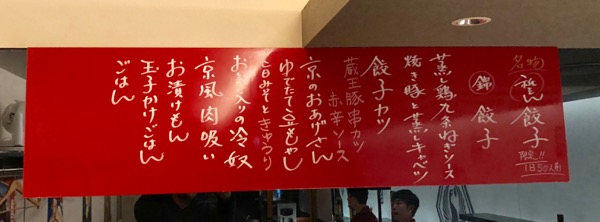 名物
祇園 餃子
限定!!
1日50人前
錦 餃子
蒸し鶏九条ねぎソース
焼き豚と蒸しキャベツ
餃子カツ
蔵王豚串カツ
赤辛ソース
京のおあげさん
ゆでたて もやし
旨みそときゅうり
の冷奴
京風肉吸い
お漬けもん
玉子かけごはん
ごはん